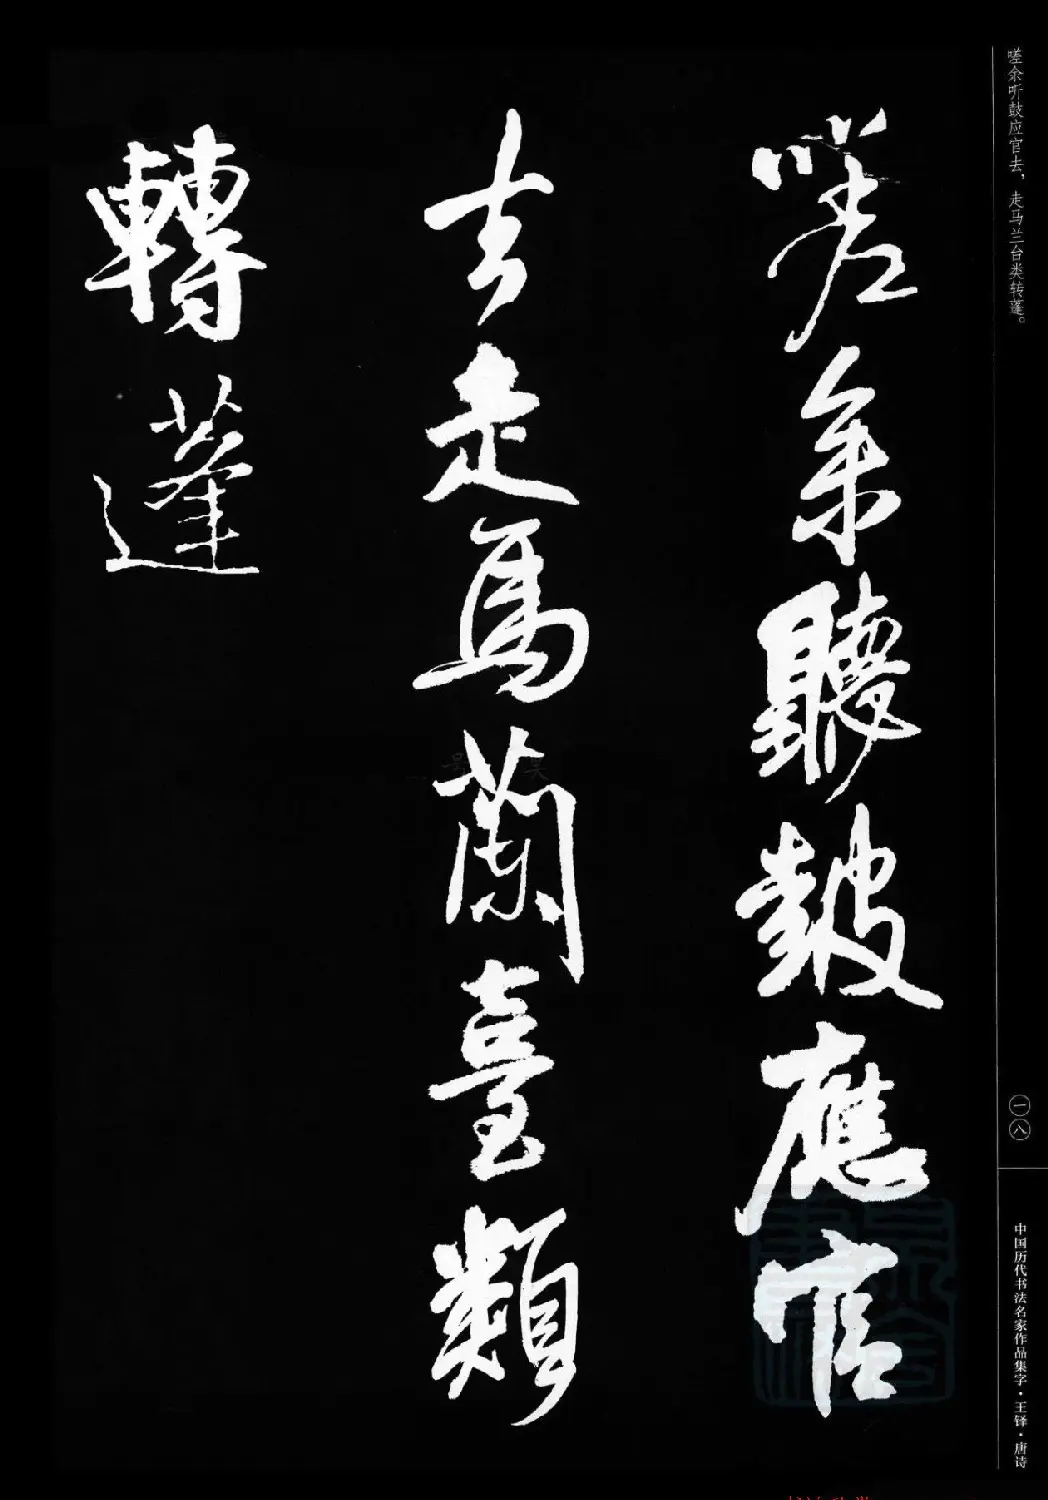 嗟余听鼓应官去，走马兰台类转蓬。
一八
中国历代书法名家作品集字·王铎·唐诗
嗟余聽鼓應官
去走馬蘭臺類
轉蓬